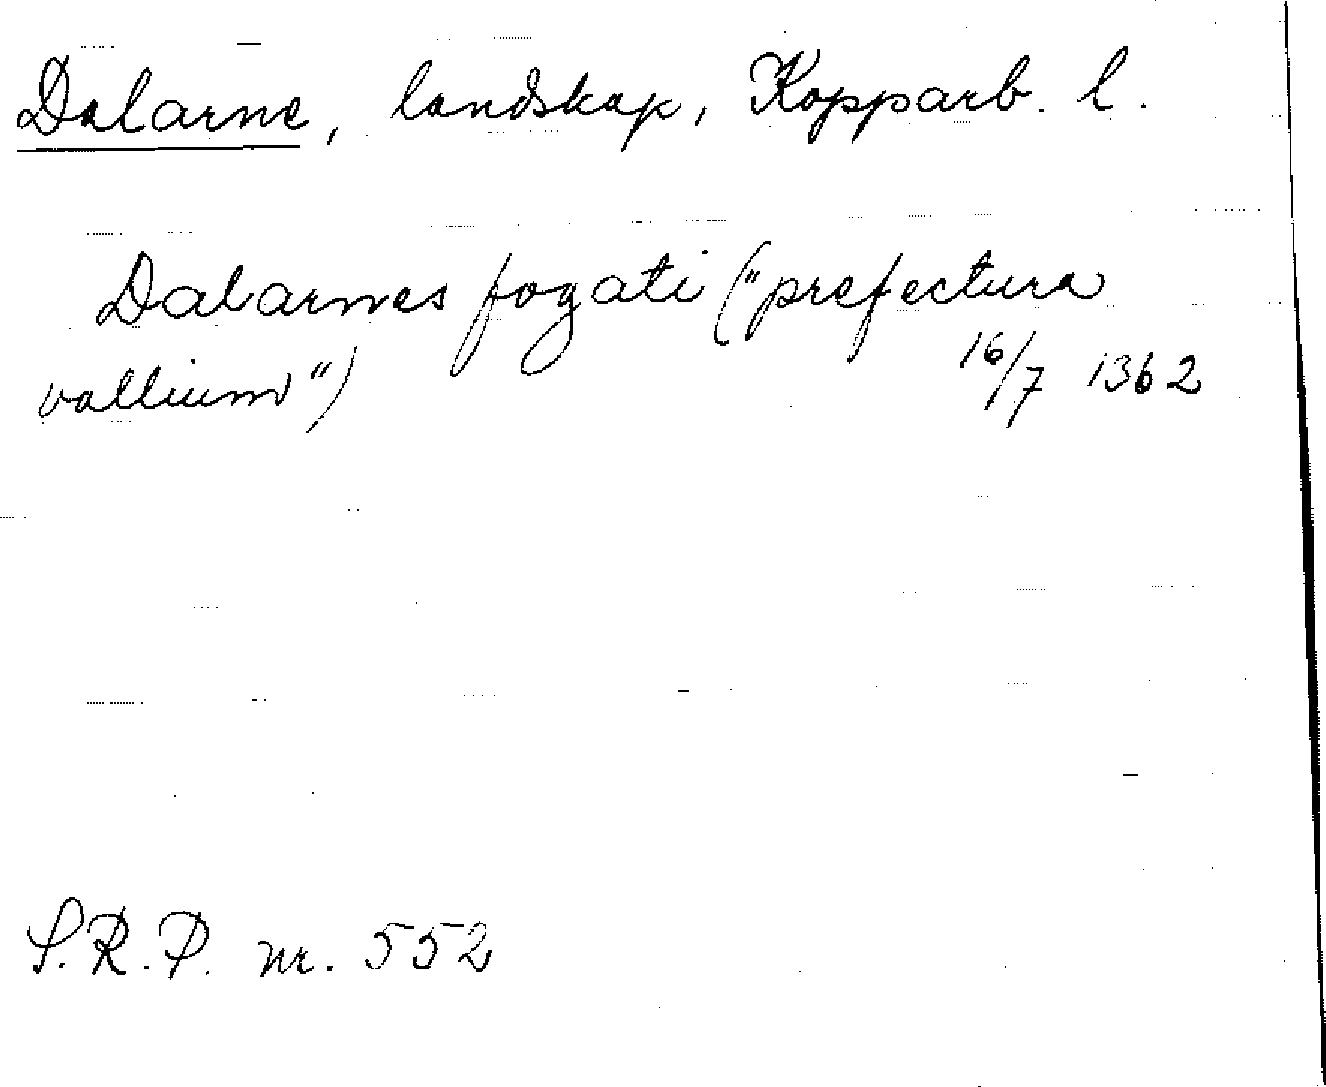 Dalarne, landskap, Kopparb. l.
Dalarnes fogati ("prefectura
vallium") 16/7 1362
S.R.P. nr. 552